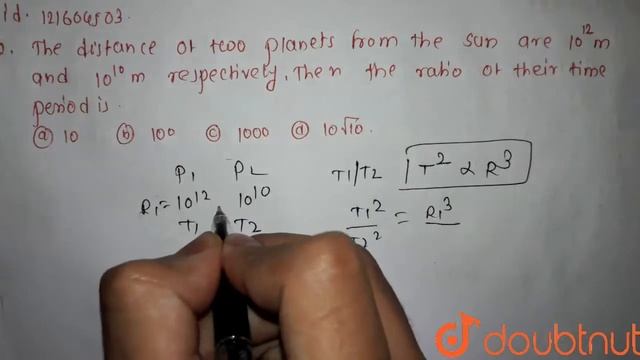 Id. 121604503.
The distance of two planets from the sun are 10¹² m
and 10¹⁰ m respectively. Then the ratio of their time
period is.
ⓐ 10 ⓑ 100 ⓒ 1000 ⓓ 10√10.
P₁ P₂
R₁ = 10¹² 10¹⁰
T₁ T₂
T₁/T₂ T² ∝ R³
T₁² = R₁³
T₂²
doubtnut